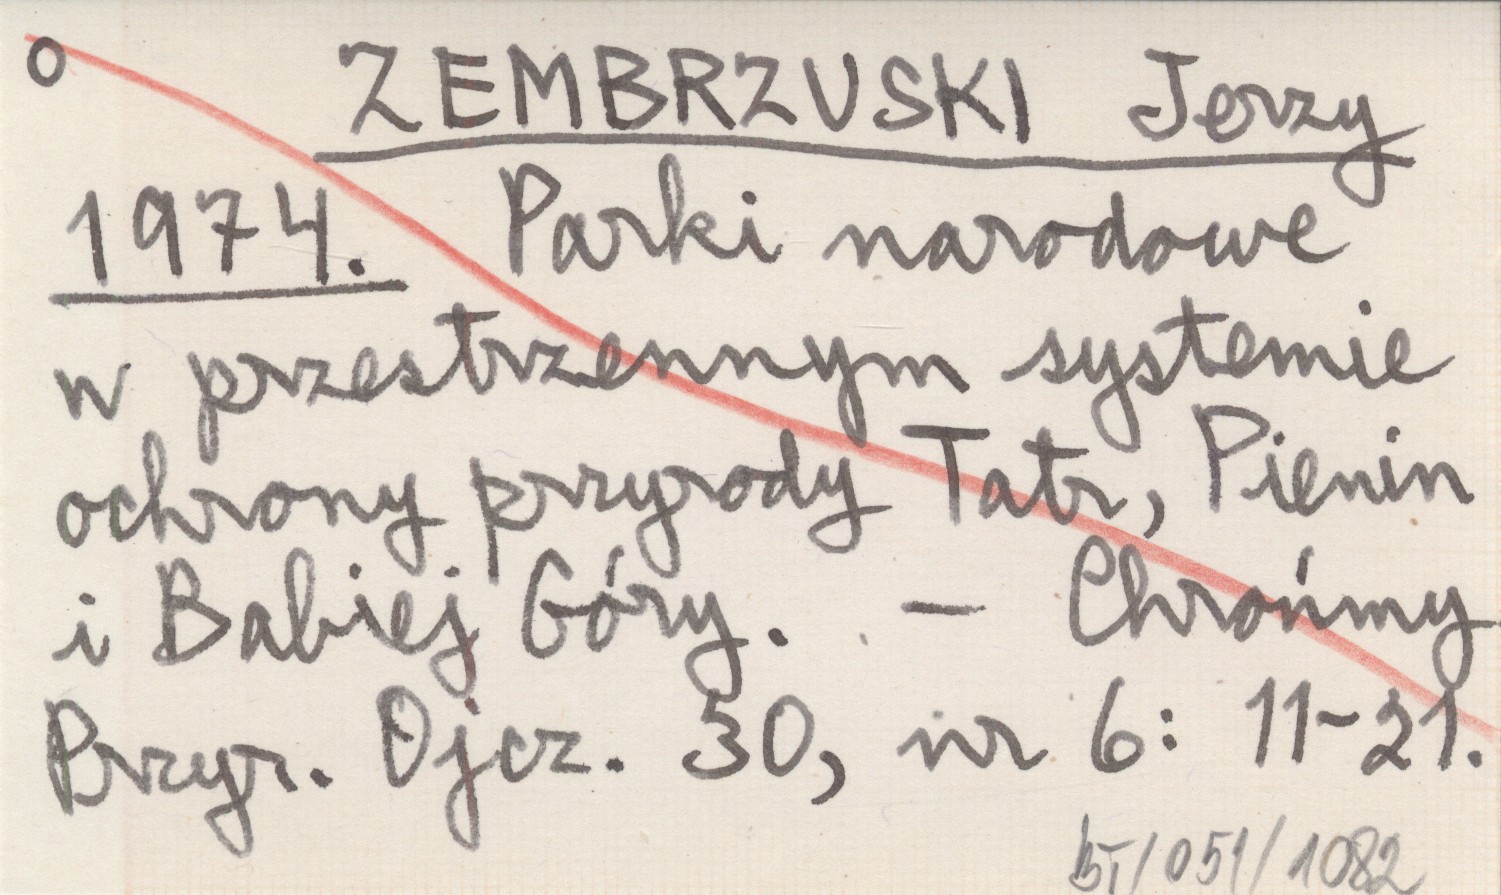 o ZEMBRZUSKI Jerzy
1974. Parki narodowe
w przestrzennym systemie
ochrony przyrody Tatr, Pienin
i Babiej Góry. – Chrońmy
Przyr. Ojcz. 30, nr 6: 11-21.
bT/051/1082